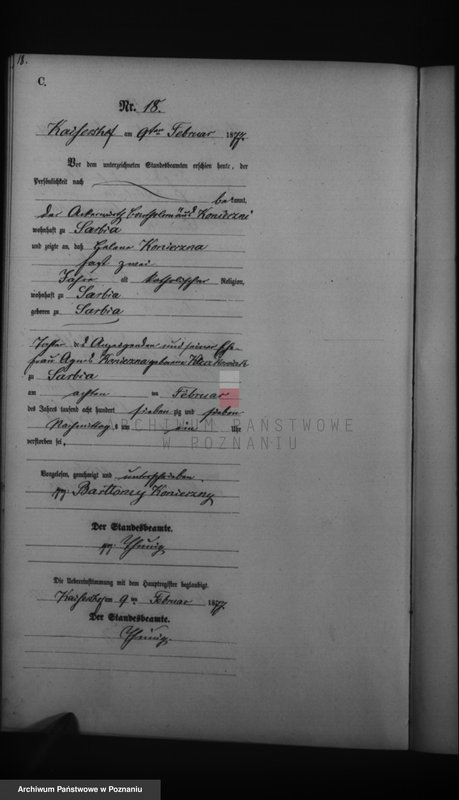 18.
C.
Nr. 18.
Kaisershof am 9ten Februar 1877.
Vor dem unterzeichneten Standesbeamten erschien heute, der
Persönlichkeit nach
bekannt,
der Ackerwirth Konieczni
wohnhaft zu Sarbia
und zeigte an, daß Helene Konieczna
fast zwei
Jahre alt katholischer Religion,
wohnhaft zu Sarbia
geboren zu Sarbia
Tochter des Anzeigenden und seiner Ehe-
frau Agnes Konieczna geborene
zu Sarbia
am achten ten Februar
des Jahres tausend acht hundert sieben zig und sieben
Nachmittags um ein Uhr
verstorben sei
Vorgelesen, genehmigt und unterschrieben
gez. Bartlomiej Konieczny
Der Standesbeamte.
gez.
Die Uebereinstimmung mit dem Hauptregister beglaubigt.
Kaisershof am 9ten Februar 1877.
Der Standesbeamte.
ARCHIWUM PAŃSTWOWE
W POZNANIU
Archiwum Państwowe w Poznaniu